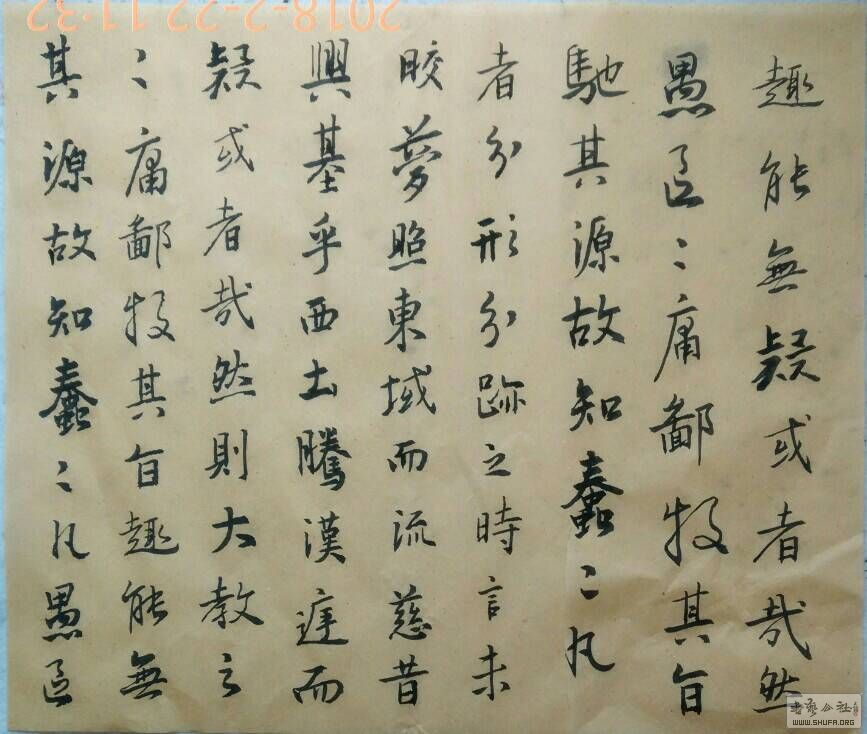 2018-2-22 11:32
趣能無疑或者哉然
愚區〻庸鄙投其旨
馳其源故知蠢〻凡
者分形分跡之時言未
皎夢照東域而流慈昔
興基乎西土騰漢庭而
疑或者哉然則大教之
〻庸鄙投其旨趣能無
其源故知蠢〻凡愚區
WWW.SHUFA.ORG